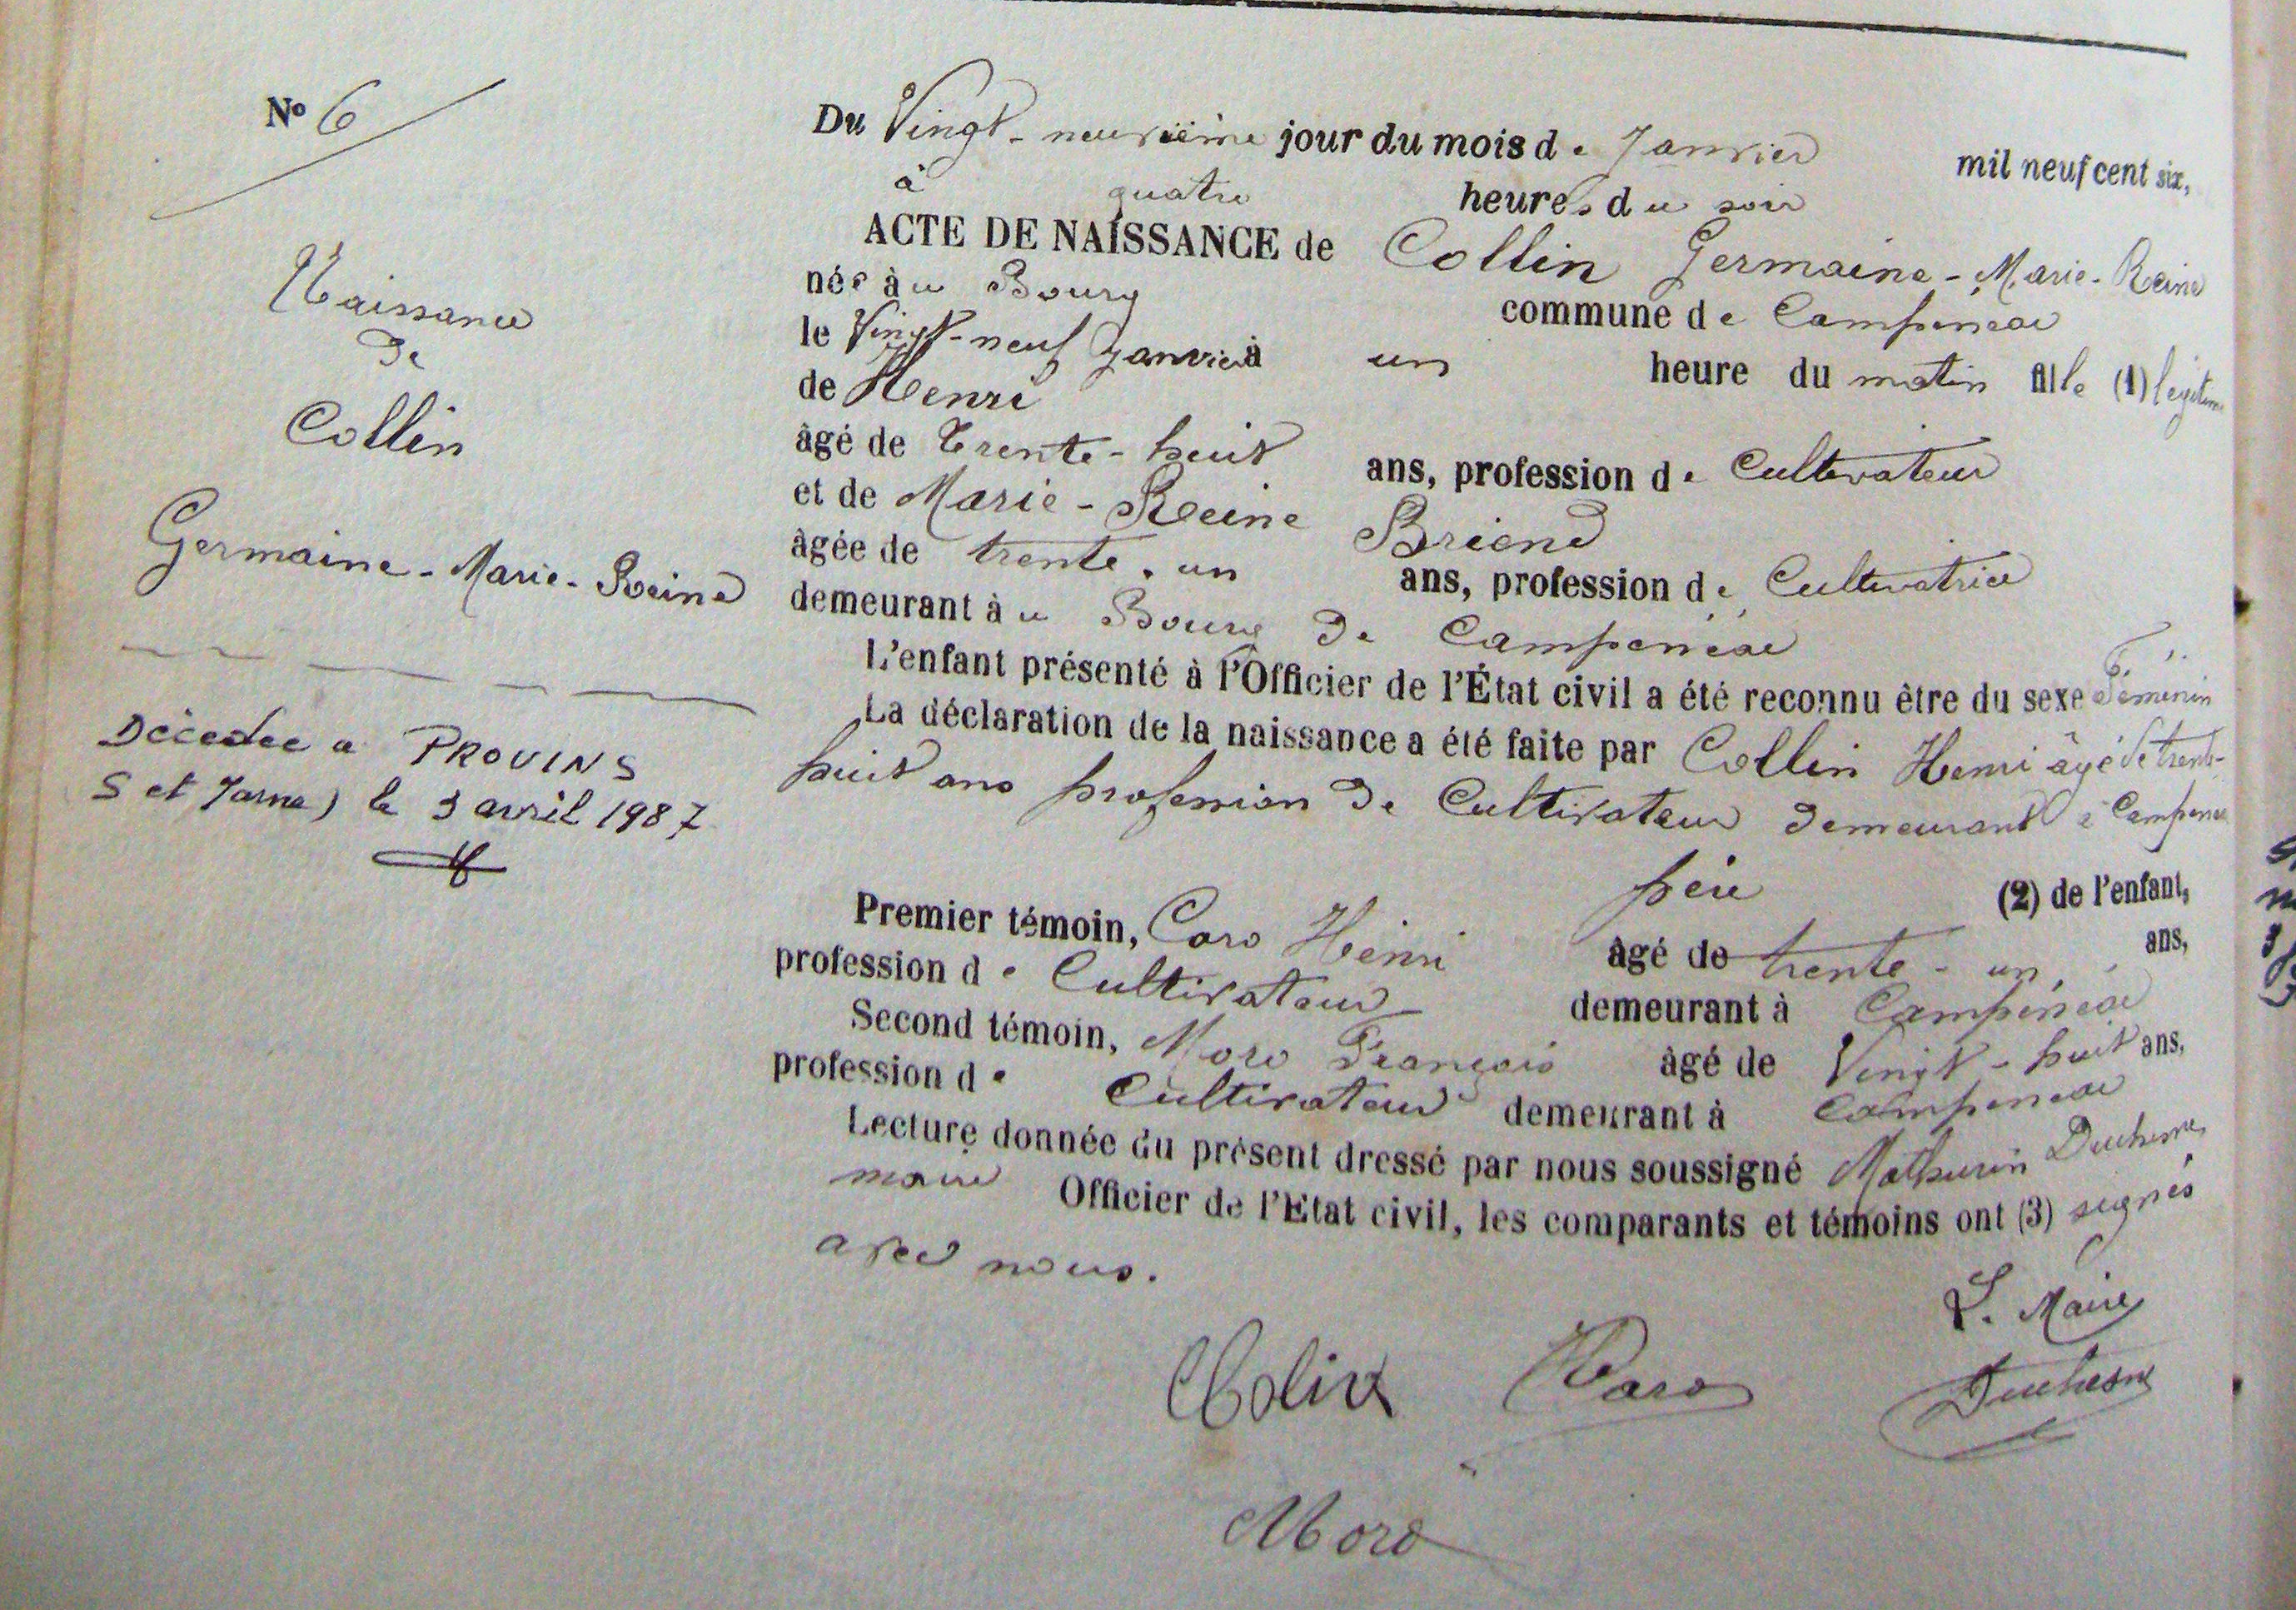 N° 6
Naissance
de
Collin
Germaine-Marie-Reine
Décédée a PROVINS
S et Marne) le 3 avril 1987
Du Vingt-neuvième jour du mois de Janvier mil neuf cent six,
à quatre heures du soir
ACTE DE NAISSANCE de Collin Germaine-Marie-Reine
née àu Bourg commune de Campénéac
le Vingt-neuf Janvier à un heure du matin fille (1) légitime
de Henri
âgé de Trente-huit ans, profession de Cultivateur
et de Marie-Reine Briend
âgée de trente-un ans, profession de Cultivatrice
demeurant àu Bourg de Campénéac
L'enfant présenté à l'Officier de l'État civil a été reconnu être du sexe Féminin
La déclaration de la naissance a été faite par Collin Henri âgé de trente-
huit ans profession de Cultivateur demeurant à Campénéac
père (2) de l'enfant,
Premier témoin, Caro Henri âgé de trente-un ans,
profession de Cultivateur demeurant à Campénéac
Second témoin, Moro François âgé de Vingt-huit ans,
profession de Cultivateur demeurant à Campénéac
Lecture donnée du présent dressé par nous soussigné Mathurin Duchesne,
maire Officier de l'État civil, les comparants et témoins ont (3) signés
avec nous.
L. Maire
Colin HCaro Duchesne
Moro